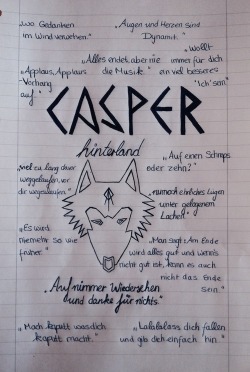 „wo Gedanken
im Wind verwehen."
„Augen und Herzen sind
Dynamit."
„Wollt
immer für dich
ein viel besseres
'Ich' sein"
„Alles endet, aber nie
die Musik."
„Applaus, Applaus
Vorhang
auf"
CASPER
hinterland
„Auf einen Schnaps
oder zehn?"
viel zu lang davor
weggelaufen, vor
dir weggelaufen."
einfaches Lügen
unter gelogenem
Lachen"
„Es wird
nie mehr so wie
früher."
„Man sagt: Am Ende
wird alles gut und wenn's
nicht gut ist, kann es auch
nicht das Ende
sein."
„Auf nimmer Wiedersehen
und danke für nichts."
„Mach kaputt was dich
kaputt macht."
„Lalalalass dich fallen
und gib dich einfach hin."